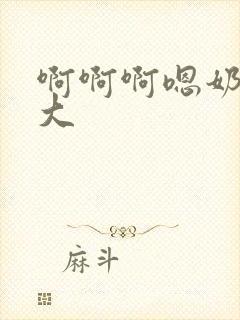 啊啊啊嗯奶
大
麻斗